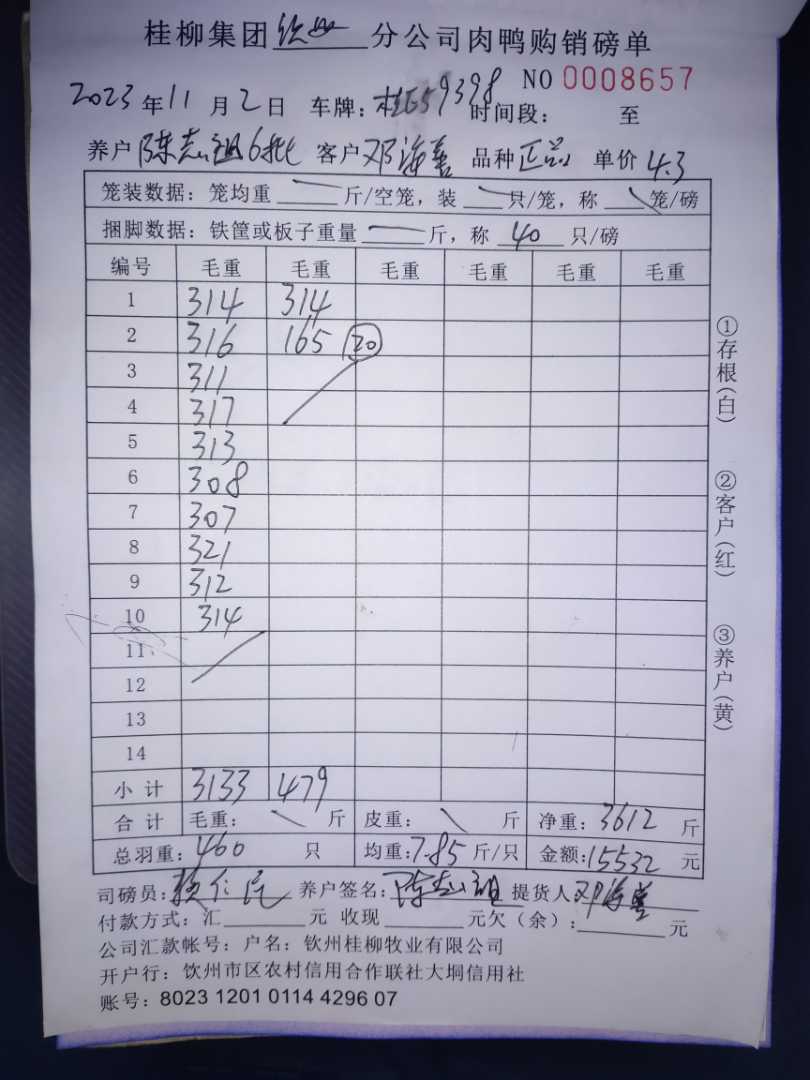 桂柳集团钦州分公司肉鸭购销磅单
NO 0008657
2023年11月2日 车牌：桂E59398 时间段： 至
养户 陈志祖6批 客户 邓海善 品种 正品 单价 4.3
笼装数据：笼均重 斤/空笼，装 只/笼，称 笼/磅
捆脚数据：铁筐或板子重量 斤，称 40 只/磅
编号 毛重 毛重 毛重 毛重 毛重 毛重
1 314 314
2 316 165 20
3 311
4 317
5 313
6 308
7 307
8 321
9 312
10 314
11
12
13
14
小计 3133 479
合计 毛重： 斤 皮重： 斤 净重：3612 斤
总羽重：460 只 均重：7.85 斤/只 金额：15532 元
司磅员： 养户签名：陈志祖 提货人 邓海善
付款方式：汇 元 收现 元欠（余）： 元
公司汇款帐号：户名：钦州桂柳牧业有限公司
开户行：饮州市区农村信用合作联社大垌信用社
账号：8023 1201 0114 4296 07
①存根（白）
②客户（红）
③养户（黄）